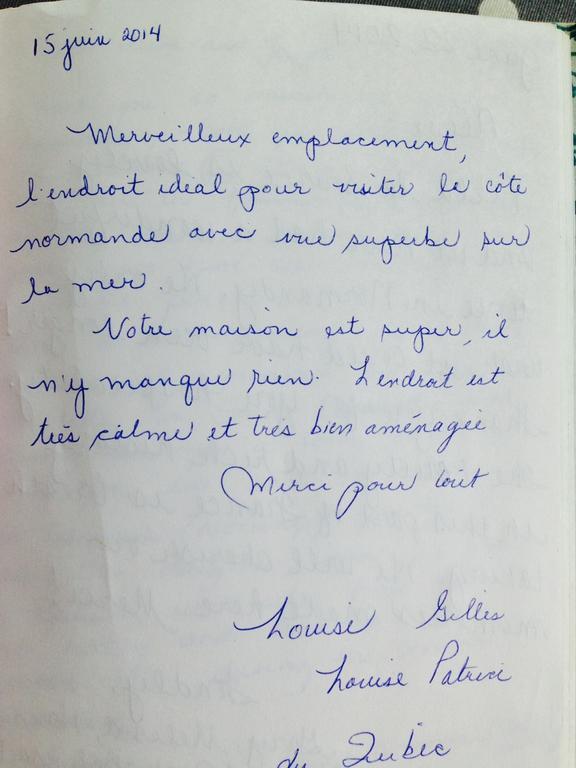 15 juin 2014
Merveilleux emplacement,
l'endroit idéal pour visiter la côte
normande avec vue superbe sur
la mer.
Votre maison est super, il
n'y manque rien. L'endroit est
très calme et très bien aménagée
Merci pour tout
Louise Gilles
Louise Patrice
du Québec